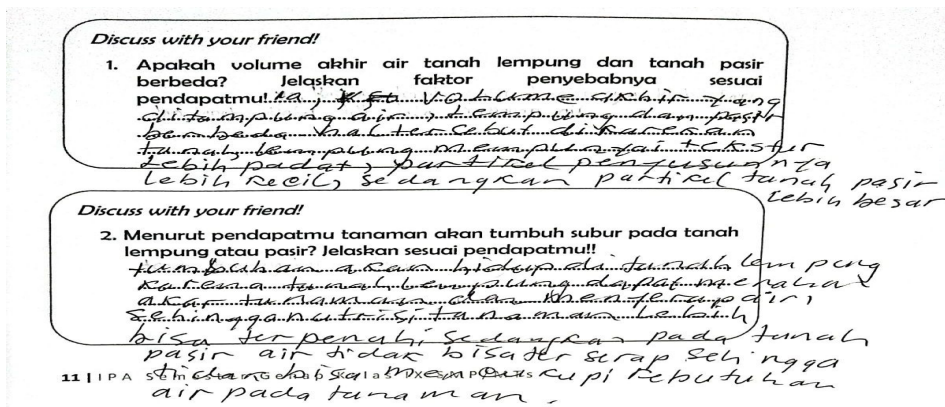 Discuss with your friend!
1. Apakah volume akhir air tanah lempung dan tanah pasir
berbeda? Jelaskan faktor penyebabnya sesuai
pendapatmu! ia, volume akhir yang
ditampung air, lempung dan pasir
berbeda hal tersebut dikarenakan
tanah lempung mempunyai tekstur
lebih padat, partikel penyusunnya
lebih kecil, sedangkan partikel tanah pasir
lebih besar
Discuss with your friend!
2. Menurut pendapatmu tanaman akan tumbuh subur pada tanah
lempung atau pasir? Jelaskan sesuai pendapatmu!!
tumbuhan akan hidup di tanah lempung
karena tanah lempung dapat menahan
akar tanaman dan menyerap air,
sehingga nutrisi tanaman lebih
bisa terpenuhi sedangkan pada tanah
pasir air tidak bisa ter serap sehingga
tidak bisa mencukupi kebutuhan
11 | IPA
air pada tanaman.